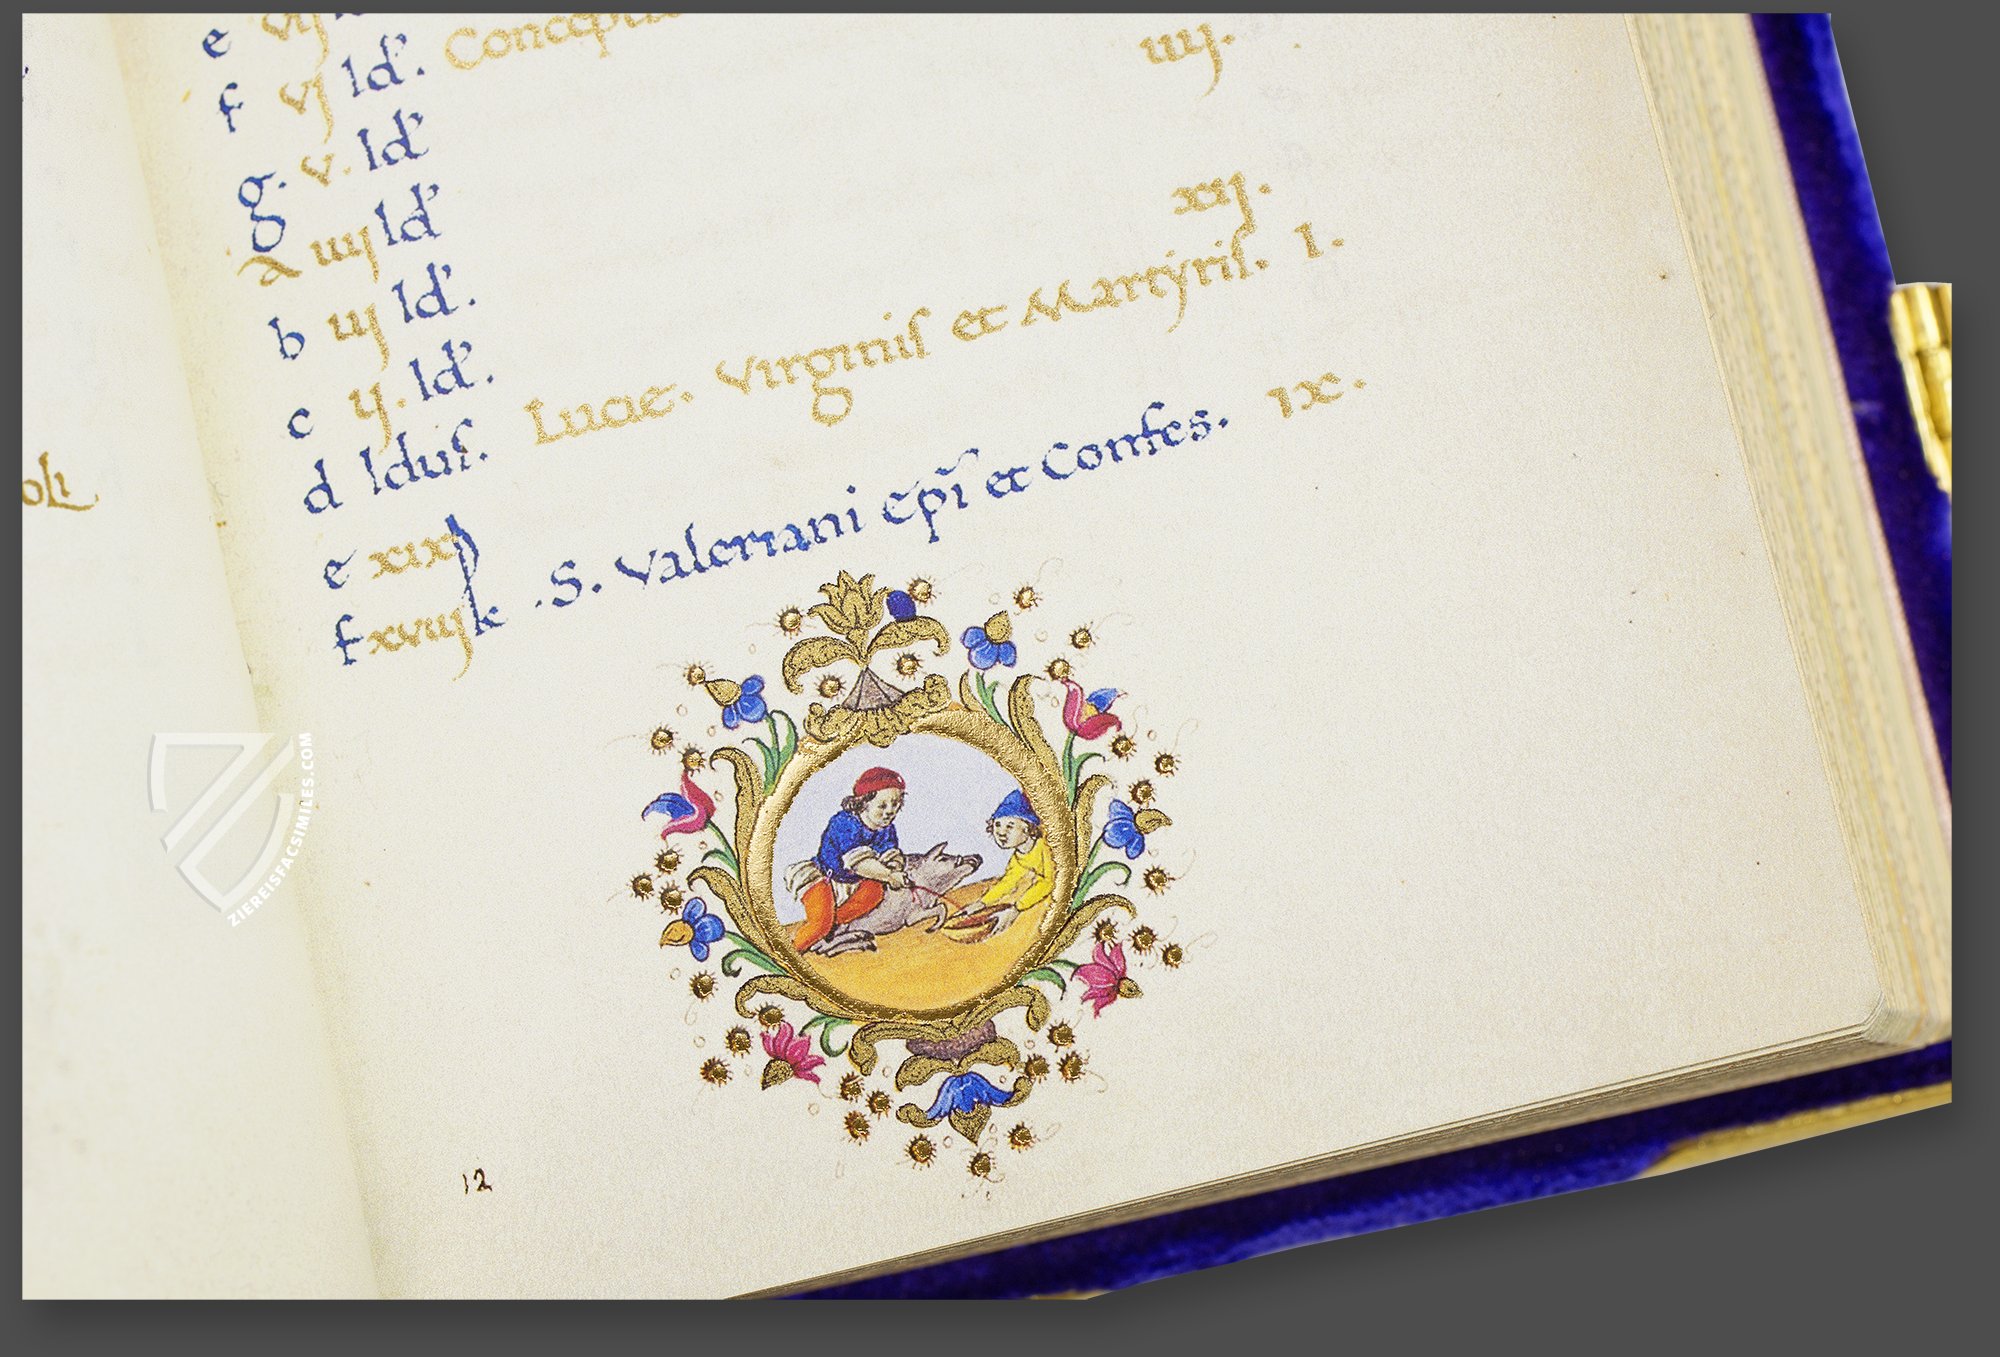 e vij
f vj Id'. Concepti
iiij.
g. v. Id'
A iiij Id'
xij.
b iij Id'.
c ij. Id'.
d Idus. Luciae. Virginis et Martyris. I.
e xix
f xviij k .S. Valeriani Epi et Confes. ix.
oli
12
ZIEREISFACSIMILES.COM